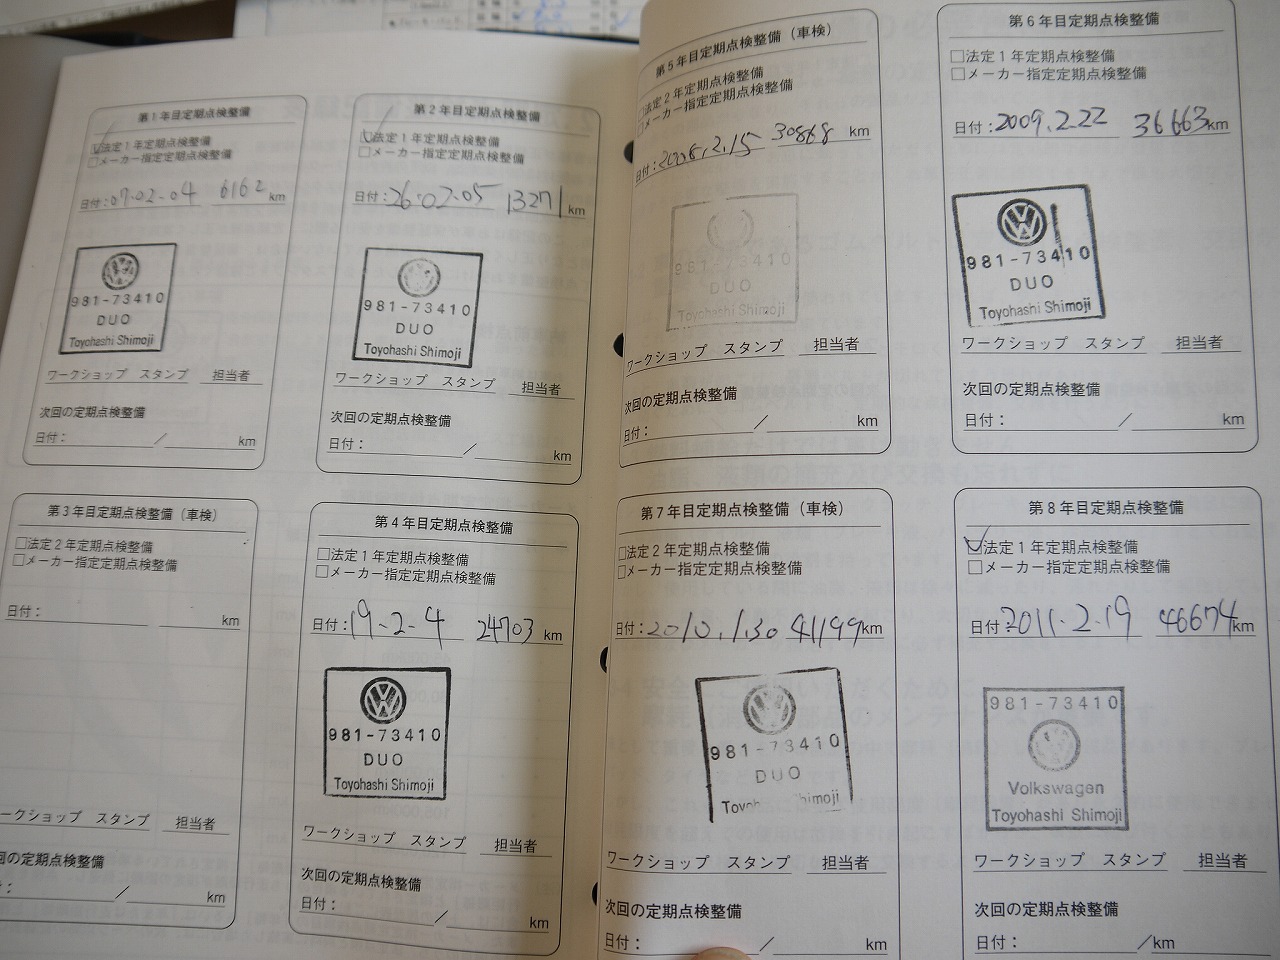 第1年目定期点検整備
法定1年定期点検整備
メーカー指定定期点検整備
日付：07.02.04 6162 km
981-73410
DUO
Toyohashi Shimoji
ワークショップ スタンプ 担当者
次回の定期点検整備
日付： / km
第2年目定期点検整備
法定1年定期点検整備
メーカー指定定期点検整備
日付：26.02.05 13271 km
981-73410
DUO
Toyohashi Shimoji
ワークショップ スタンプ 担当者
次回の定期点検整備
日付： / km
第3年目定期点検整備（車検）
法定2年定期点検整備
メーカー指定定期点検整備
日付： km
ークショップ スタンプ 担当者
回の定期点検整備
： / km
第4年目定期点検整備
法定1年定期点検整備
メーカー指定定期点検整備
日付：19-2-4 24703 km
981-73410
DUO
Toyohashi Shimoji
ワークショップ スタンプ 担当者
次回の定期点検整備
日付： / km
第5年目定期点検整備（車検）
法定2年定期点検整備
メーカー指定定期点検整備
日付：2008.2.15 30868 km
981-73410
DUO
Toyohashi Shimoji
ワークショップ スタンプ 担当者
次回の定期点検整備
日付： / km
第6年目定期点検整備
法定1年定期点検整備
メーカー指定定期点検整備
日付：2009.2.22 36663km
981-73410
DUO
Toyohashi Shimoji
ワークショップ スタンプ 担当者
次回の定期点検整備
日付： / km
第7年目定期点検整備（車検）
法定2年定期点検整備
メーカー指定定期点検整備
日付：2010.1.30 41199km
981-73410
DUO
Toyohashi Shimoji
ワークショップ スタンプ 担当者
次回の定期点検整備
日付： / km
第8年目定期点検整備
法定1年定期点検整備
メーカー指定定期点検整備
日付：2011.2.19 46674km
981-73410
Volkswagen
Toyohashi Shimoji
ワークショップ スタンプ 担当者
次回の定期点検整備
日付： /km